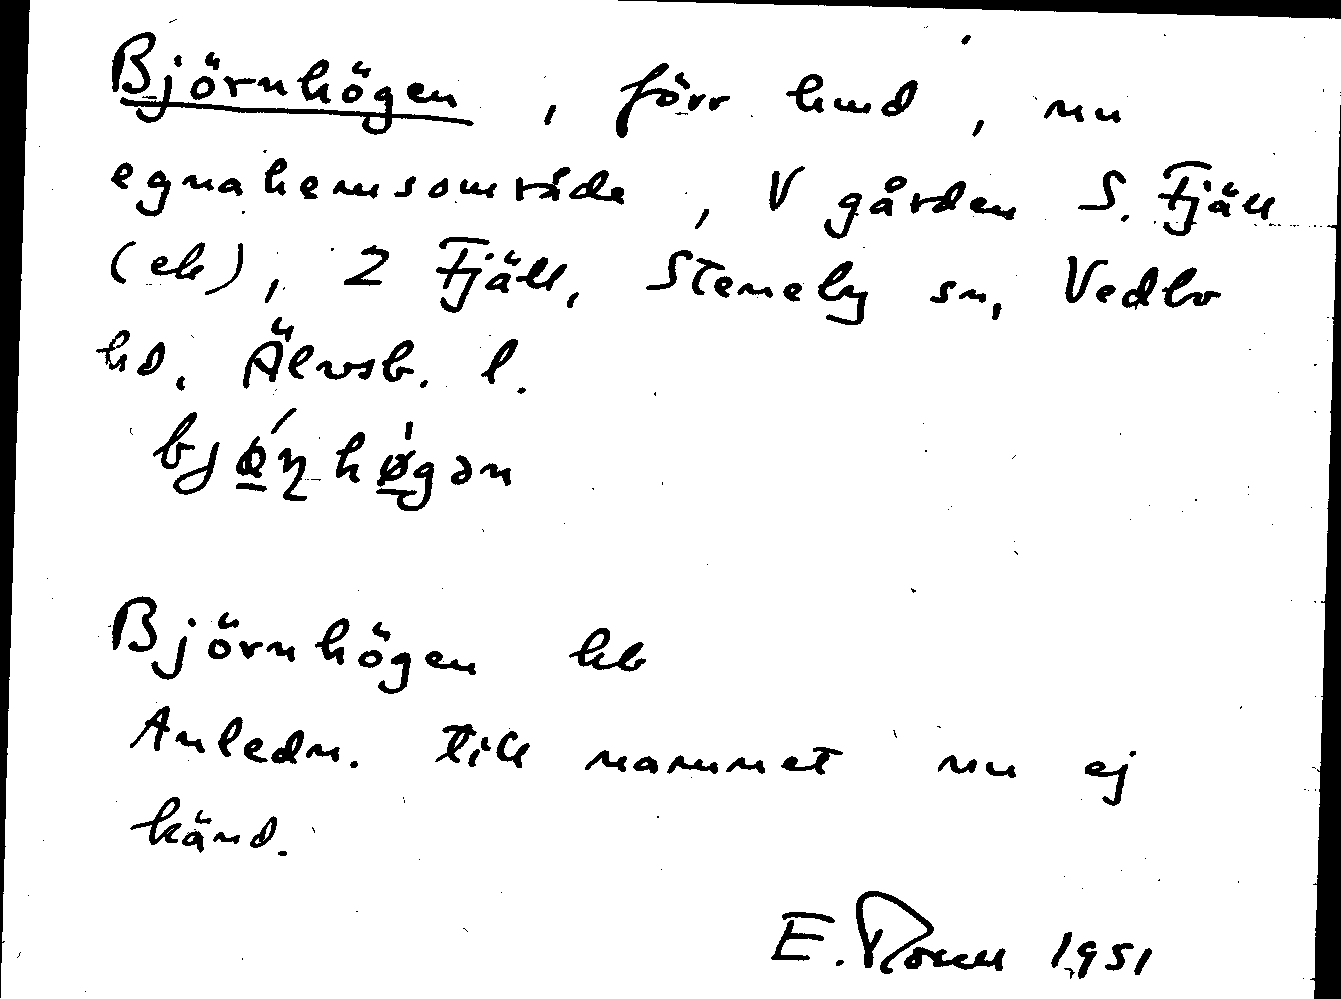 Björnhögen, förr hmd, nu
egnahemsområde, V gården S. Fjäll
(ek), 2 Fjäll, Steneby sn, Vedbo
hd, Älvsb. l.
bjǿɳhø̍gən
Björnhögen hb
Anledn. till namnet nu ej
känd.
E. 1951